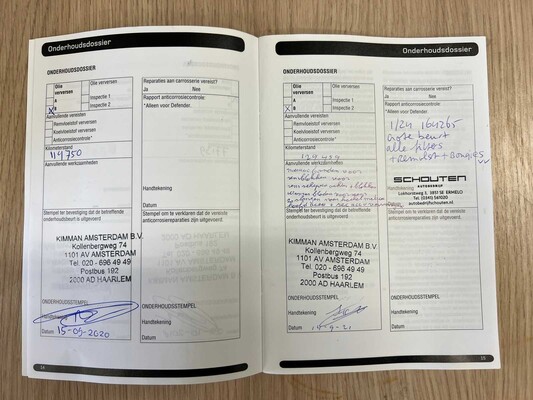 Onderhoudsdossier
ONDERHOUDSDOSSIER
Olie verversen
Olie
verversen
A
Inspectie 1
X B
Inspectie 2
Aanvullende vereisten
Remvloeistof verversen
Koelvloeistof verversen
Anticorrosiecontrole*
Kilometerstand
114750
Aanvullende werkzaamheden
Stempel ter bevestiging dat de betreffende
onderhoudsbeurt is uitgevoerd.
KIMMAN AMSTERDAM B.V.
Kollenbergweg 74
1101 AV AMSTERDAM
Tel. 020 - 696 49 49
Postbus 192
2000 AD HAARLEM
ONDERHOUDSSTEMPEL
Handtekening
Datum 15-09-2020
Reparaties aan carrosserie vereist?
Ja Nee
Rapport anticorrosiecontrole:
*Alleen voor Defender.
Handtekening:
Datum
Stempel om te verklaren dat de vereiste
anticorrosiereparaties zijn uitgevoerd.
ONDERHOUDSSTEMPEL
Handtekening
Datum
14
Onderhoudsdossier
ONDERHOUDSDOSSIER
Olie verversen
Olie
verversen
A
Inspectie 1
X B
Inspectie 2
Aanvullende vereisten
Remvloeistof verversen
Koelvloeistof verversen
Anticorrosiecontrole*
Kilometerstand
Aanvullende werkzaamheden
Stempel ter bevestiging dat de betreffende
onderhoudsbeurt is uitgevoerd.
KIMMAN AMSTERDAM B.V.
Kollenbergweg 74
1101 AV AMSTERDAM
Tel. 020 - 696 49 49
Postbus 192
2000 AD HAARLEM
ONDERHOUDSSTEMPEL
Handtekening
Datum
Reparaties aan carrosserie vereist?
Ja Nee
Rapport anticorrosiecontrole:
*Alleen voor Defender.
1/24 164265
grote beurt
alle filters
+ remvlst + Bougies
SCHOUTEN
AUTOBEDRIJF
Lokhorstweg 2, 3851 SE ERMELO
Tel. (0341) 561020
autobedrijfschouten.nl
Handtekening:
Datum
Stempel om te verklaren dat de vereiste
anticorrosiereparaties zijn uitgevoerd.
ONDERHOUDSSTEMPEL
Handtekening
Datum
15